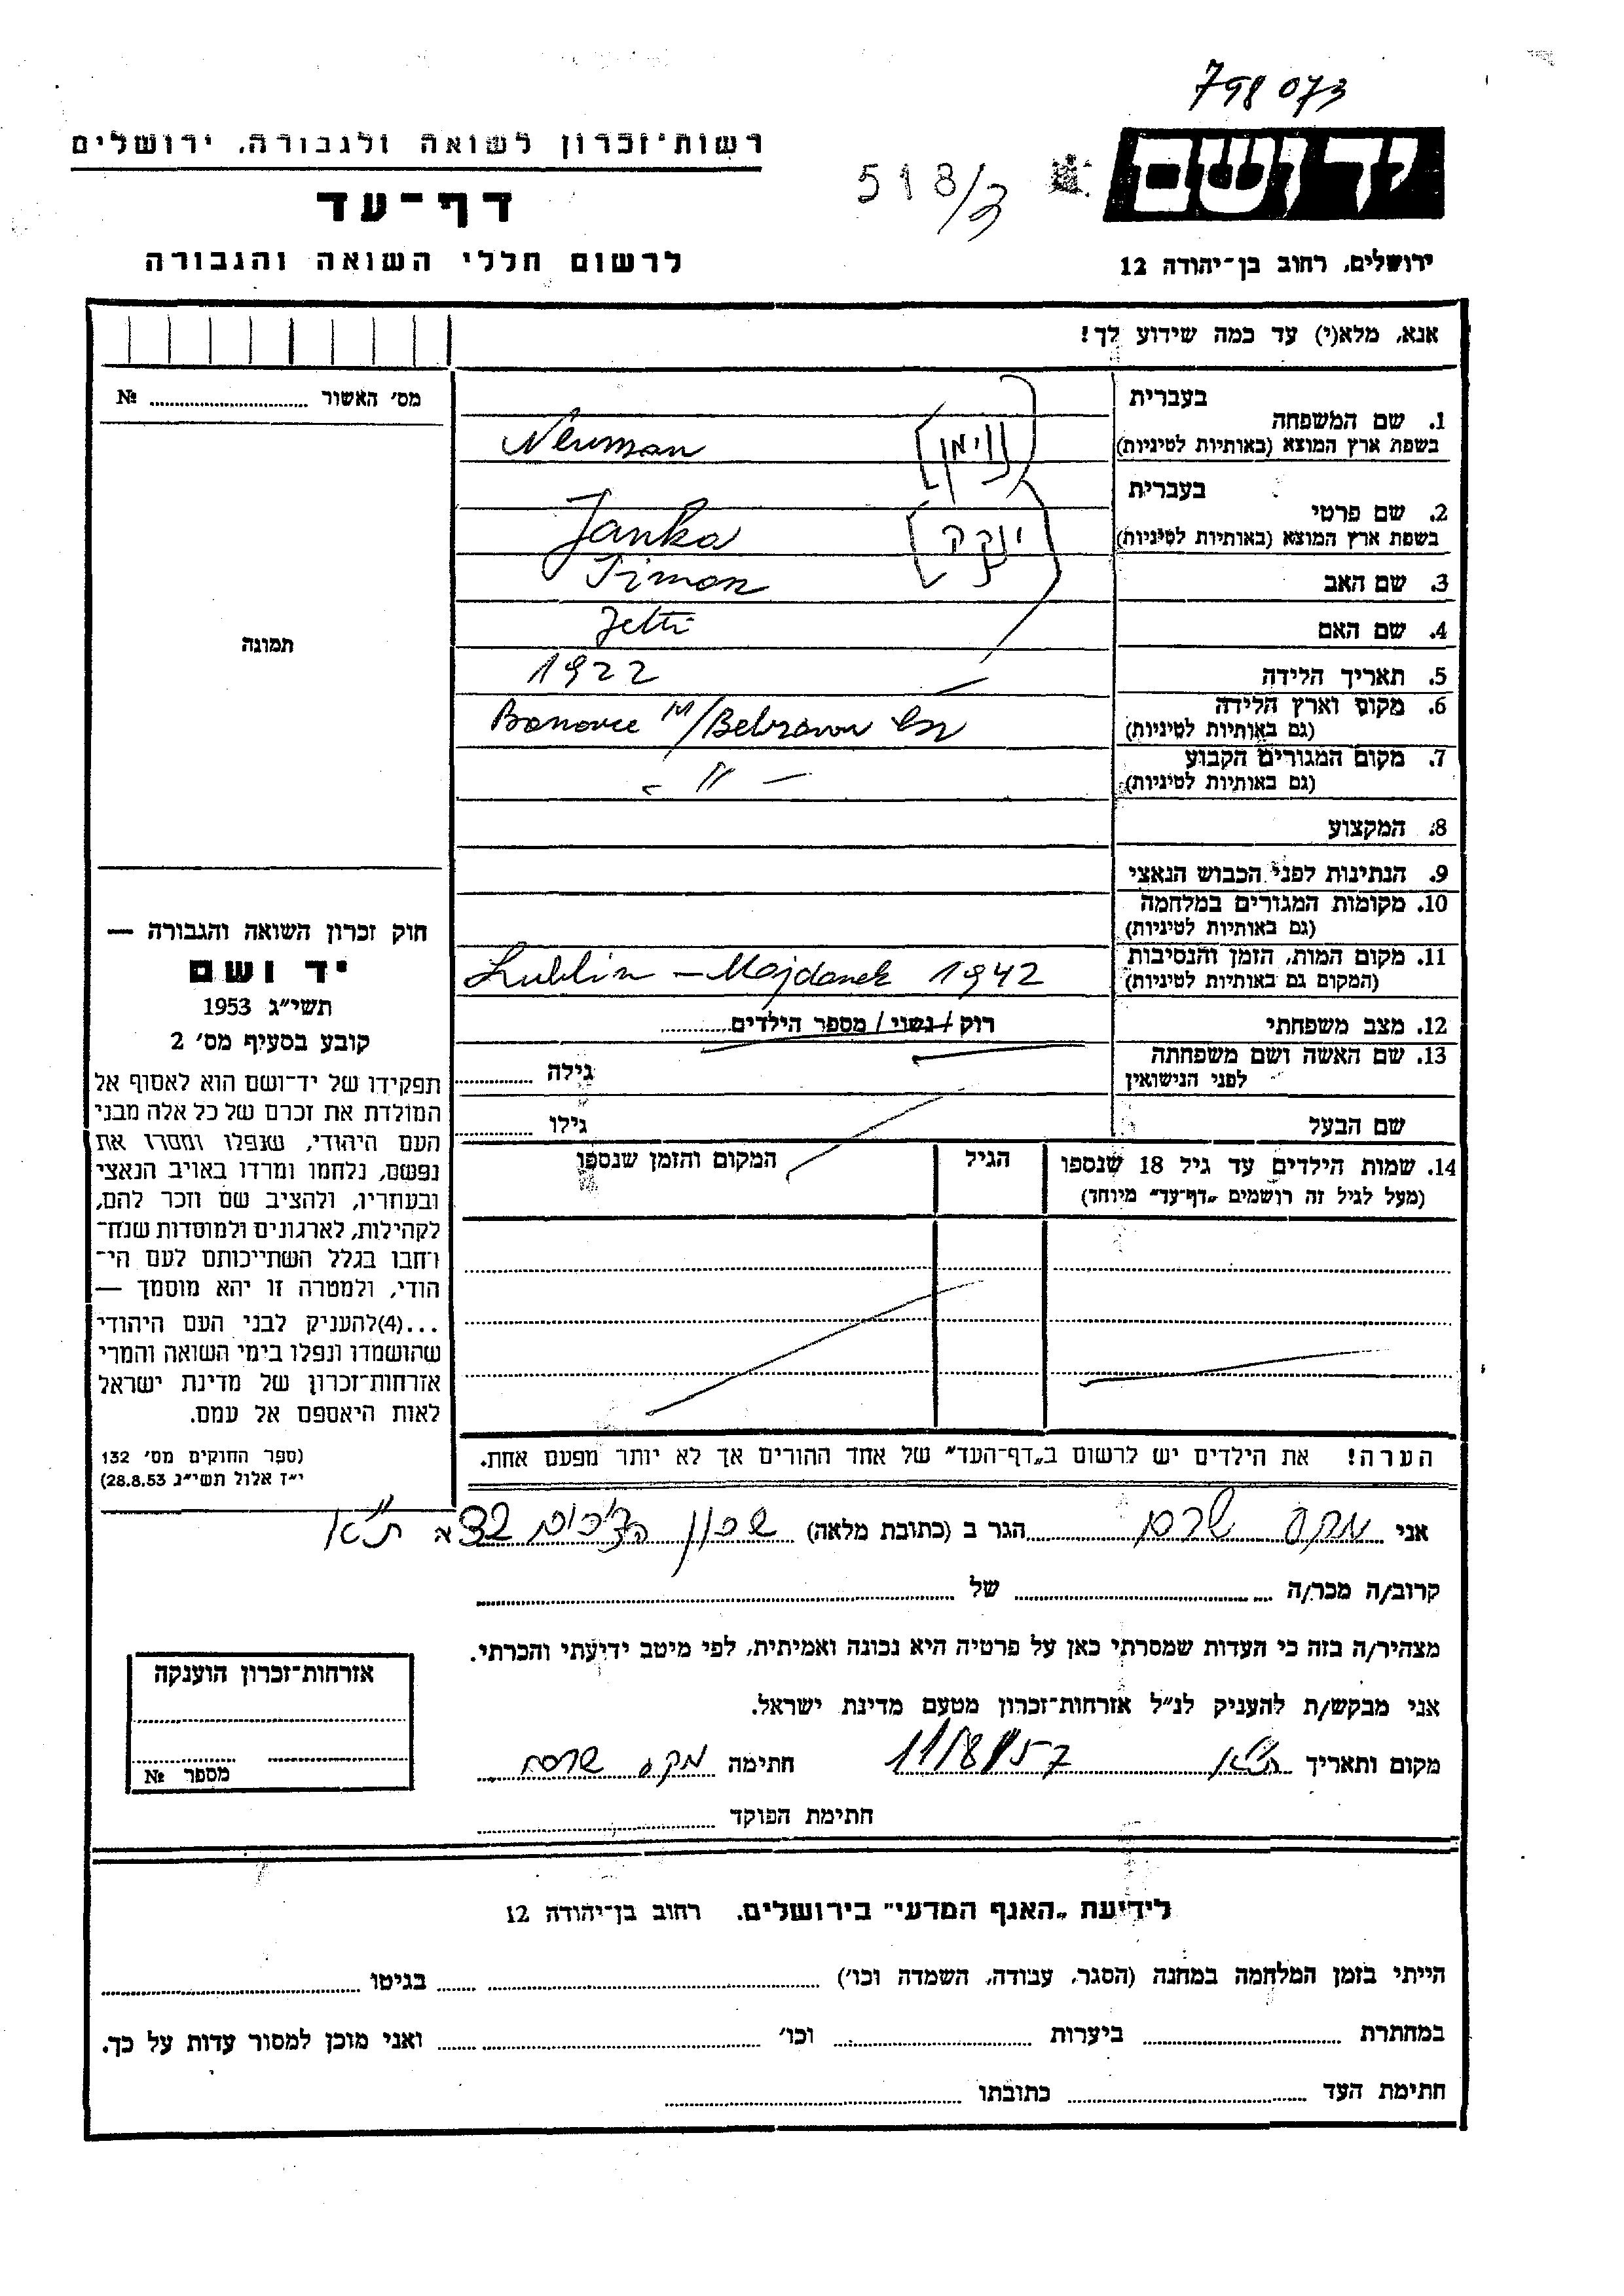 798073
518/3
יד ושם
ירושלים, רחוב בן-יהודה 12
רשות-זכרון לשואה ולגבורה, ירושלים
דף-עד
לרשום חללי השואה והגבורה
אנא, מלא(י) עד כמה שידוע לך!
מס' האשור № 
1. שם המשפחה בעברית [נוימן]
בשפת ארץ המוצא (באותיות לטיניות) Neuman
2. שם פרטי בעברית [ינקה]
בשפת ארץ המוצא (באותיות לטיניות) Janka
3. שם האב Simon
4. שם האם Jetti
5. תאריך הלידה 1922
6. מקום וארץ הלידה Banovce /Bebravou
(גם באותיות לטיניות)
7. מקום המגורים הקבוע - " -
(גם באותיות לטיניות)
8. המקצוע
9. הנתינות לפני הכבוש הנאצי
10. מקומות המגורים במלחמה
(גם באותיות לטיניות)
11. מקום המות, הזמן והנסיבות Lublin - Majdanek 1942
(המקום גם באותיות לטיניות)
12. מצב משפחתי רוק / נשוי / מספר הילדים
13. שם האשה ושם משפחתה
לפני הנישואין גילה
שם הבעל גילו
14. שמות הילדים עד גיל 18 שנספו הגיל המקום והזמן שנספו
(מעל לגיל זה רושמים "דף-עד" מיוחד)
הערה! את הילדים יש לרשום ב"דף-העד" של אחד ההורים אך לא יותר מפעם אחת.
תמונה
חוק זכרון השואה והגבורה —
יד ושם
תשי"ג 1953
קובע בסעיף מס' 2
תפקידו של יד-ושם הוא לאסוף אל
המולדת את זכרם של כל אלה מבני
העם היהודי, שנפלו ומסרו את
נפשם, נלחמו ומרדו באויב הנאצי
ובעוזריו, ולהציב שם וזכר להם,
לקהילות, לארגונים ולמוסדות שנח-
רחבו בגלל השתייכותם לעם הי-
הודי, ולמטרה זו יהא מוסמך —
...(4)להעניק לבני העם היהודי
שהושמדו ונפלו בימי השואה והמרי
אזרחות-זכרון של מדינת ישראל
לאות היאספם אל עמם.
(ספר החוקים מס' 132
י"ז אלול תשי"ג 28.8.53)
אני הגר ב (כתובת מלאה) שכון ת"א
קרוב/ה מכר/ה של
מצהיר/ה בזה כי העדות שמסרתי כאן על פרטיה היא נכונה ואמיתית, לפי מיטב ידיעתי והכרתי.
אני מבקש/ת להעניק לנ"ל אזרחות-זכרון מטעם מדינת ישראל.
מקום ותאריך ת"א 11/8/57 חתימה
חתימת הפוקד
אזרחות-זכרון הוענקה
מספר №
לידיעת "האגף המדעי" בירושלים, רחוב בן-יהודה 12
הייתי בזמן המלחמה במחנה (הסגר, עבודה, השמדה וכו') בגיטו
במחתרת ביערות וכו' ואני מוכן למסור עדות על כך.
חתימת העד כתובתו